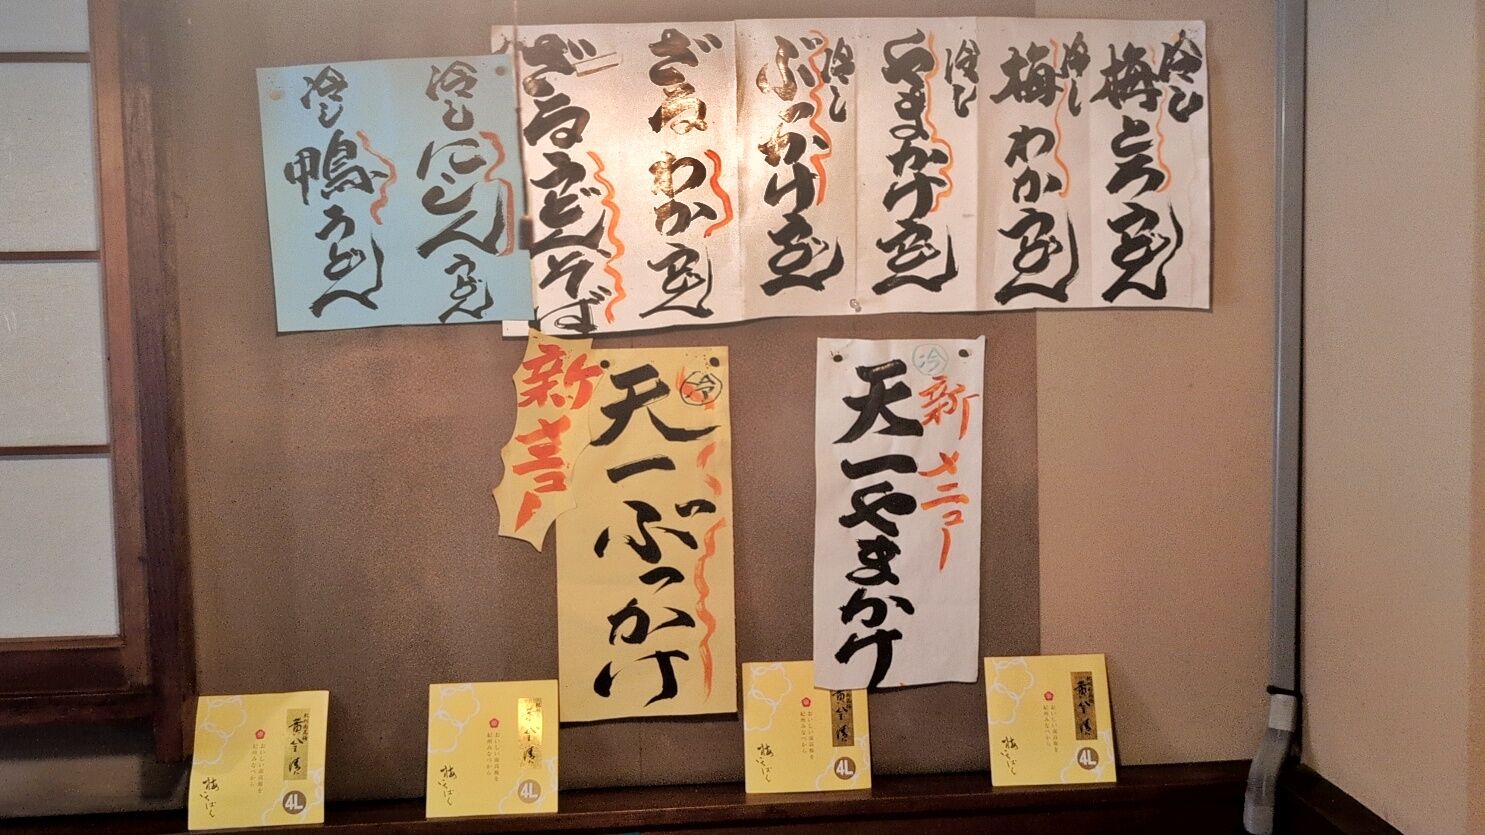 冷し
梅とろうどん
冷し
梅わかうどん
冷し
やまかけうどん
冷し
ぶっかけうどん
ざるわかうどん
ざるうどんそば
冷し
にしんうどん
冷し
鴨うどん
冷
新メニュー
天一やまかけ
冷
天一ぶっかけ
新メニュー
黄金漬
おいしい南高梅を
紀州みなべから
梅いちばん
4L
黄金漬
おいしい南高梅を
紀州みなべから
4L
黄金漬
おいしい南高梅を
紀州みなべから
4L
おいしい南高梅を
紀州みなべから
4L